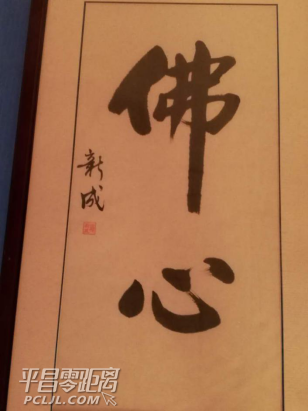 佛心
新成
平昌零距离
PCLJL.COM